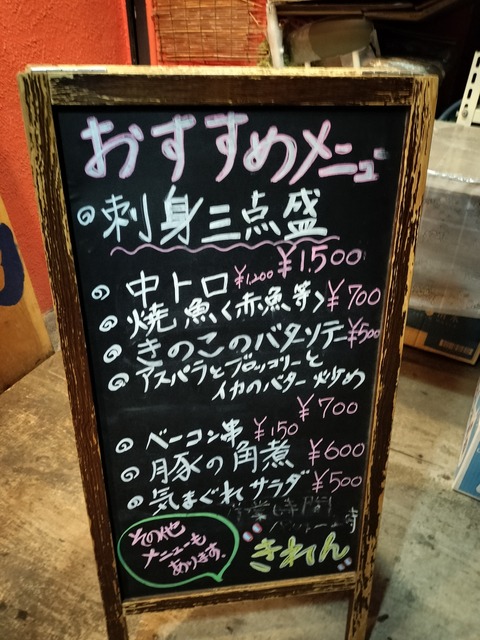 おすすめメニュー
刺身三点盛
¥1,500
中トロ ¥1,200
焼魚<赤魚等> ¥700
きのこのバタソテー ¥500
アスパラとブロッコリーと
イカのバター炒め
¥700
ベーコン串 ¥150
豚の角煮 ¥600
気まぐれサラダ ¥500
営業時間
その他
メニューも
あります。
きれん